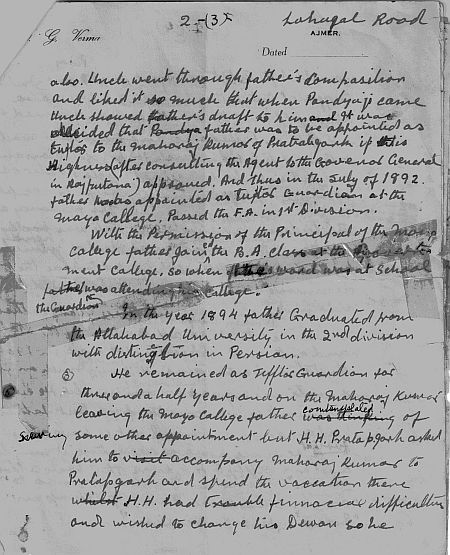 2-(3)
Lohagal Road
G. Verma
AJMER.
Dated
also. Uncle went through father's composition
and liked it so much that when Pandyaji came
Uncle showed father's draft to him and it was
decided that Pandya father was to be appointed as
Tutor to the Maharaj Kumar of Pratabgarh if His
Highness (after consulting the Agent to the Govenor General
in Rajputana) approved. And thus in the July of 1892
father was appointed as Tutor Guardian at the
Mayo College. Passed the F.A. in 1st Division.
With the Permission of the Principal of the Mayo
College father Join the B.A. Class at the Govern
ment College. So when the ward was at School
father was attending his College.
the Guardian
In the year 1894 father Graduated from
the Allahabad University in the 2nd division
with distinction in Persian.
He remained as Tutor Guardian for
three and a half years and on the Maharaj Kumar
contemplated
leaving the Mayo College father was thinking of
securing some other appointment but H.H. Pratapgarh asked
him to visit accompany Maharaj Kumar to
Pratapgarh and spend the vaccation there
whilst H.H. had trouble finnacial difficulties
and wished to change his Dewan so he